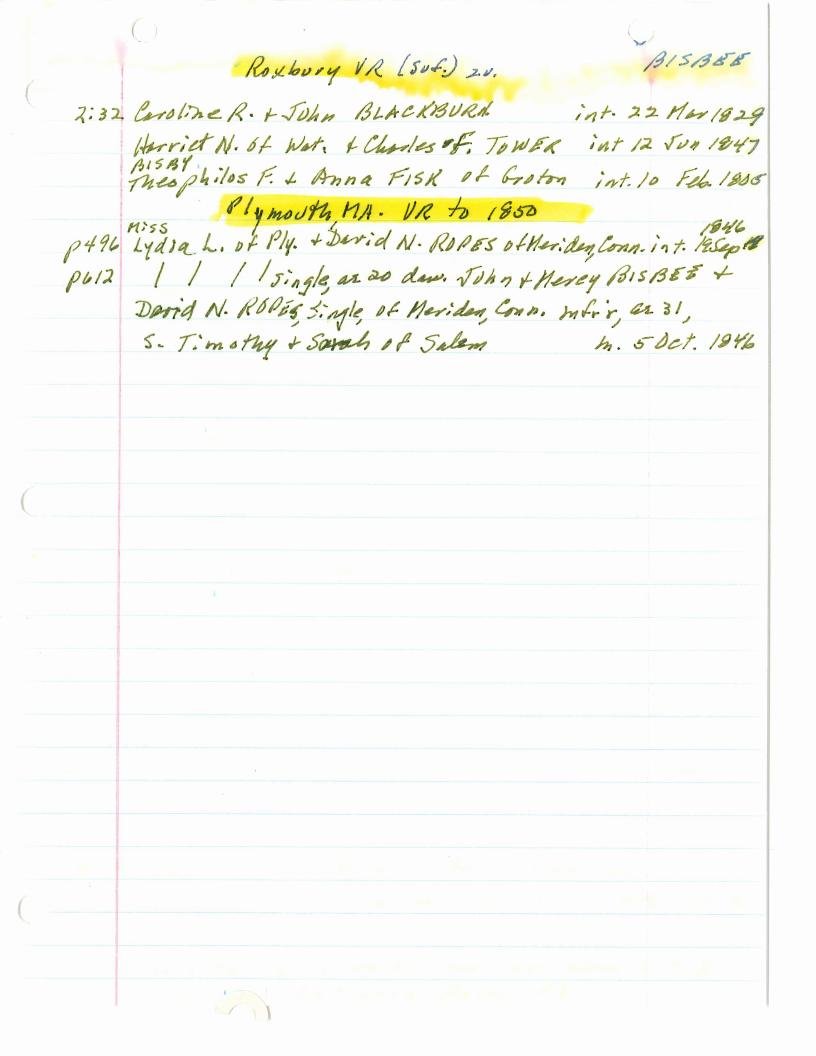 Roxbury VR (Suf.) 2v. BISBEE
2:32 Caroline R. + John BLACKBURN int. 22 Mar 1829
Harriet N. of Wat. + Charles F. TOWER int 12 Jun 1847
BISBY
Theophilos F. + Anna FISK of Groton int. 10 Feb.
Plymouth, MA. VR to 1850
Miss 1846
p496 Lydia L. of Ply. + David N. ROPES of Meriden, Conn. int. Sep
p612 / / / / single, ae 20 daw. John + Mercy BISBEE +
David N. ROPES, Single, of Meriden, Conn. mfr'r, ae 31,
S. Timothy + Sarah of Salem m. 5 Oct. 1846